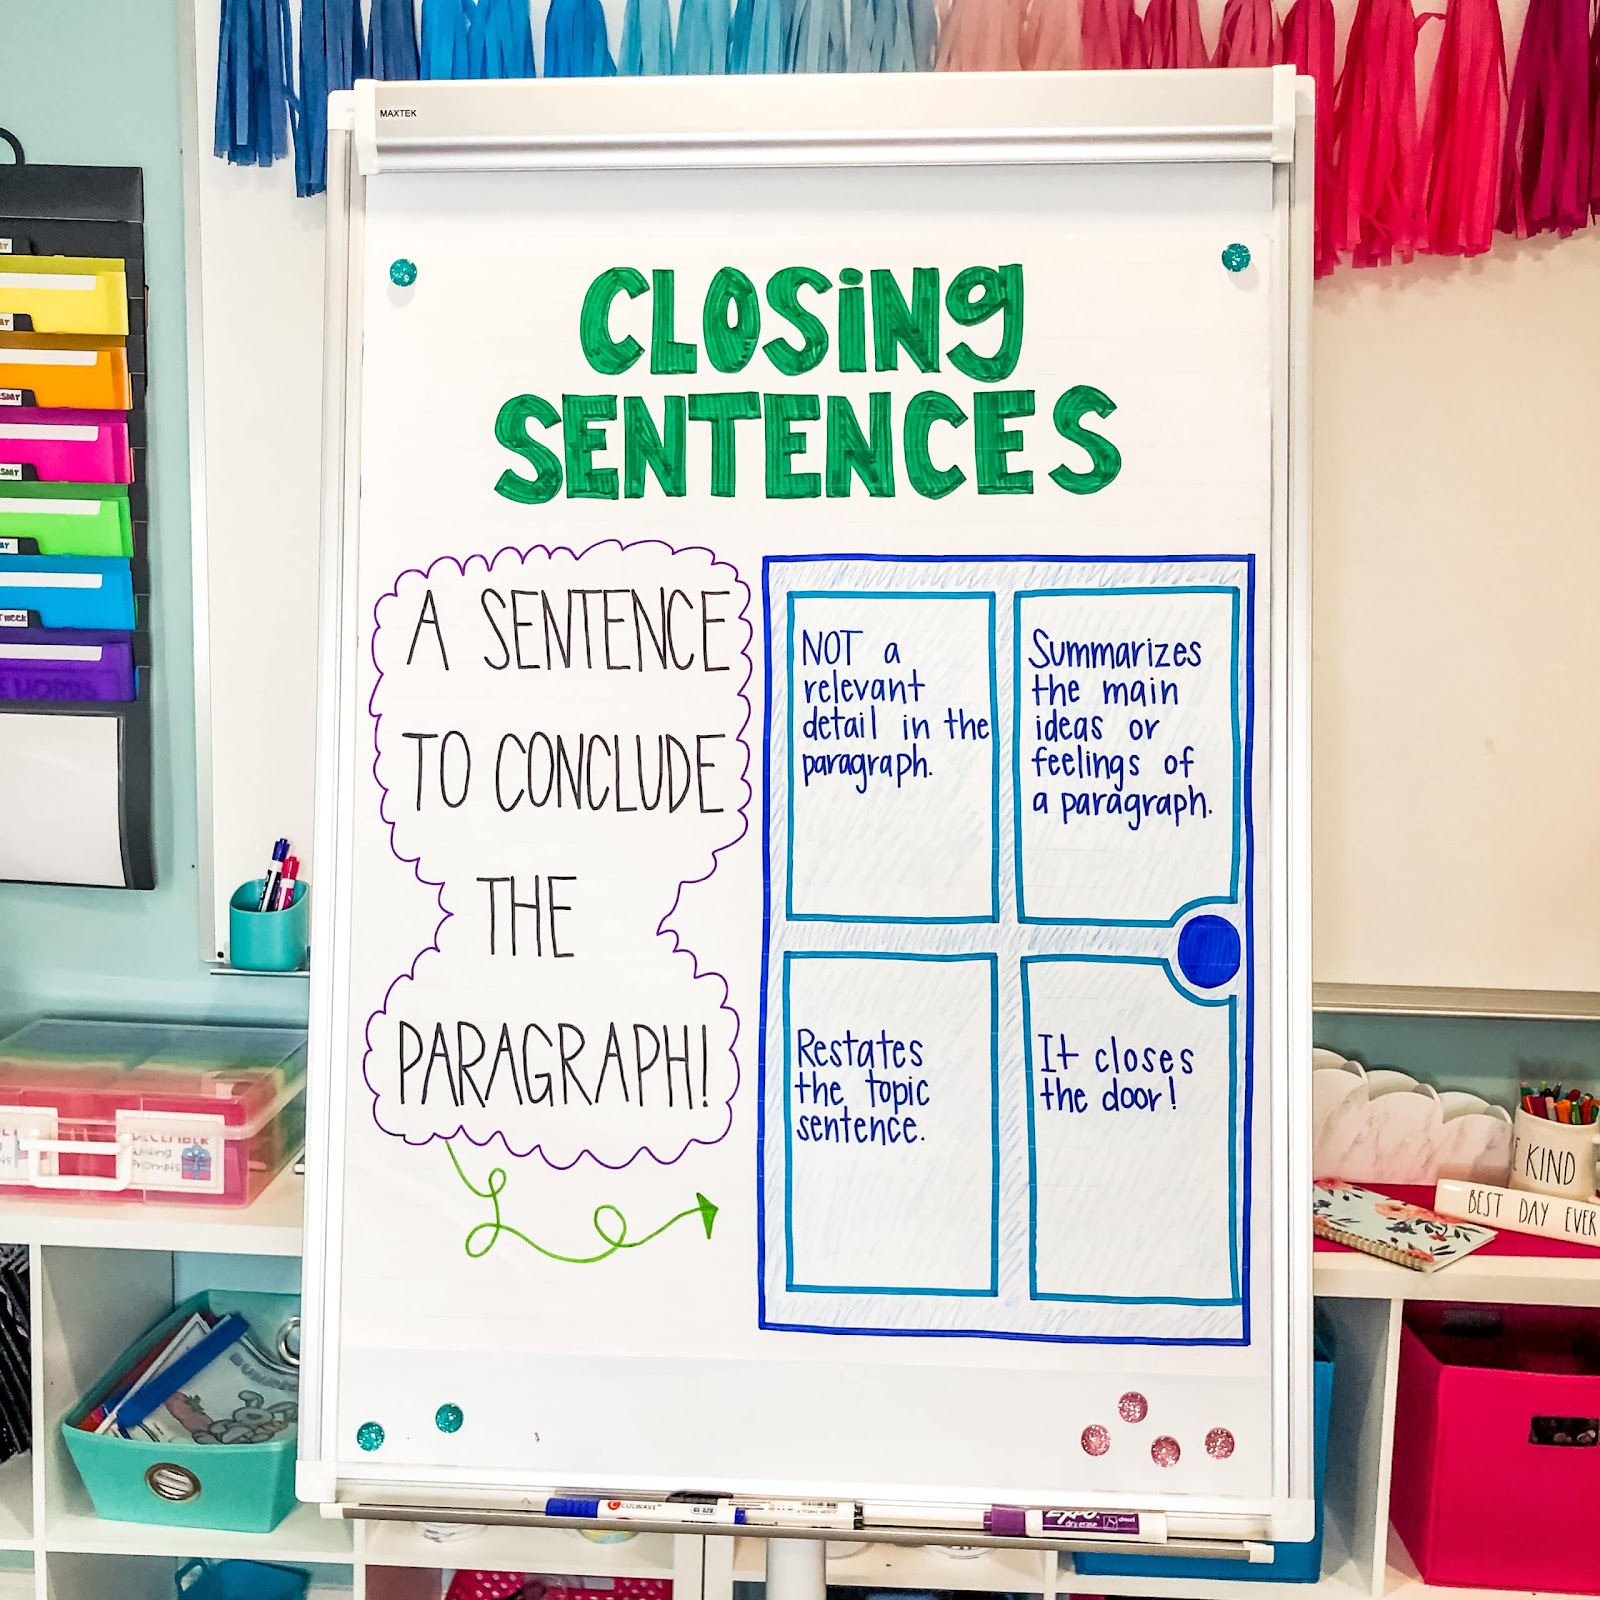 MAXTEK
CLOSING
SENTENCES
A SENTENCE
TO CONCLUDE
THE
PARAGRAPH!
NOT a
relevant
detail in the
paragraph.
Summarizes
the main
ideas or
feelings of
a paragraph.
Restates
the topic
sentence.
It closes
the door!
WEEK
WORDS
DECEMBER
Writing
Prompts
KIND
BEST DAY EVER
COLWAVE
EXPO
dry erase